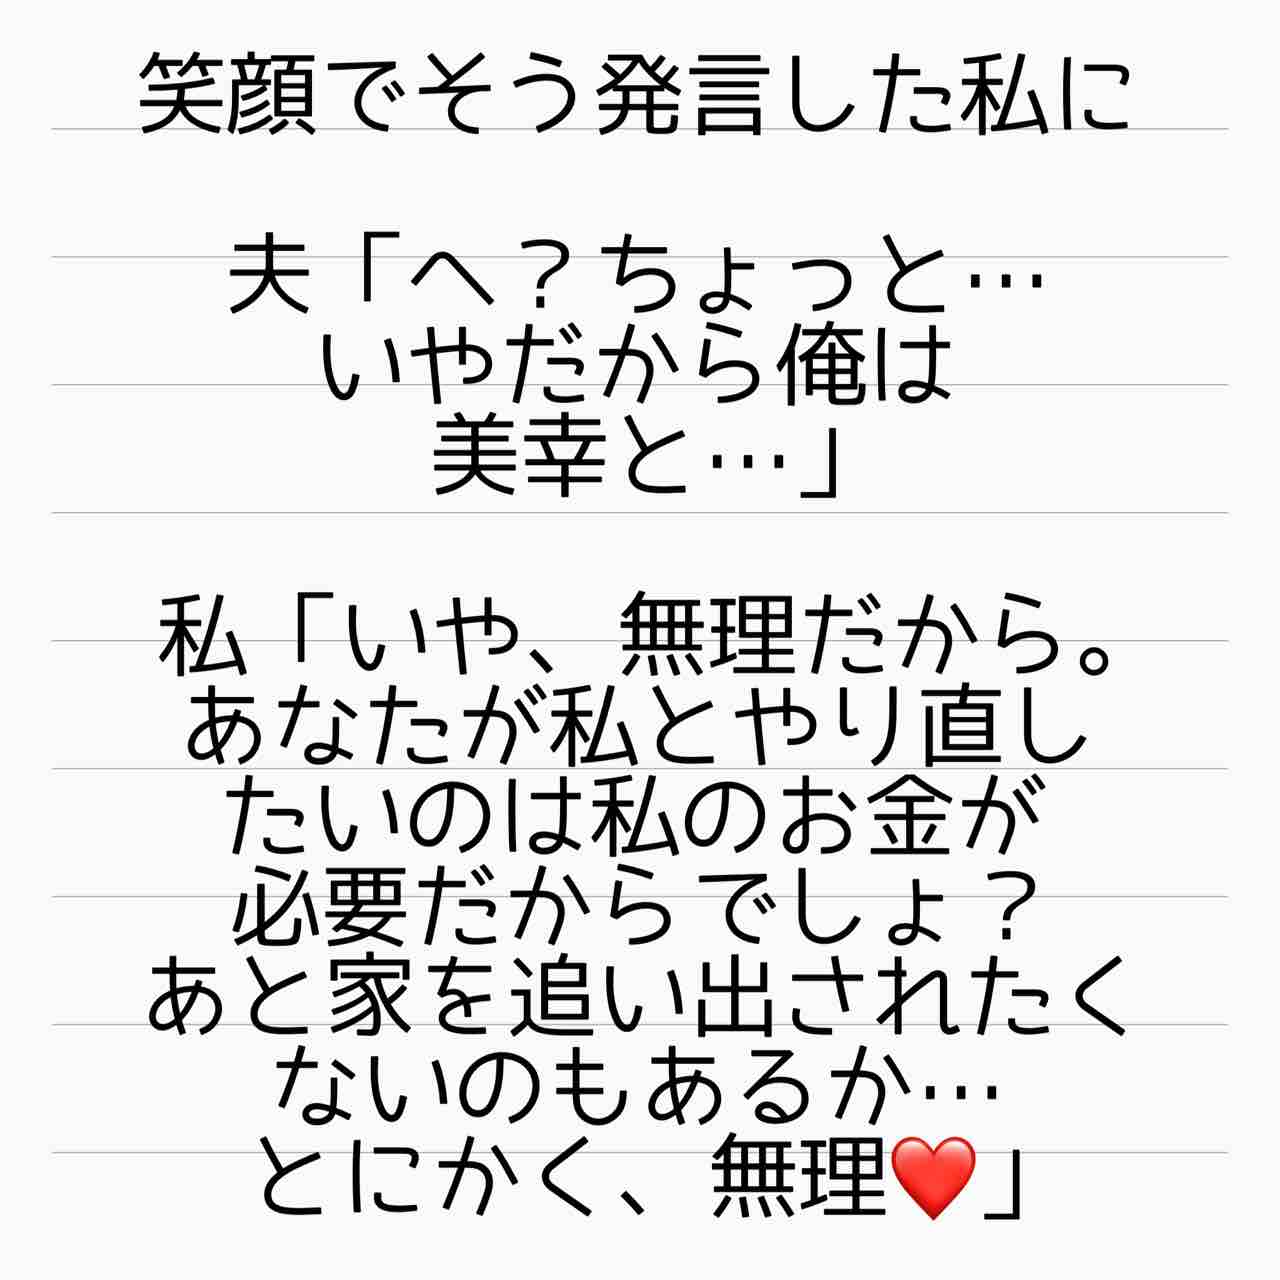 笑顔でそう発言した私に
夫「へ？ちょっと…
いやだから俺は
美幸と…」
私「いや、無理だから。
あなたが私とやり直し
たいのは私のお金が
必要だからでしょ？
あと家を追い出されたく
ないのもあるか…
とにかく、無理❤️」